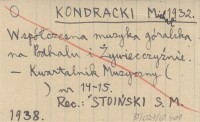 KONDRACKI Michał 1932.
Współczesna muzyka góralska
na Podhalu i Żywiecczyźnie.
- Kwartalnik Muzyczny (
) nr 14-15.
Rec.: STOIŃSKI S. M.
1938.